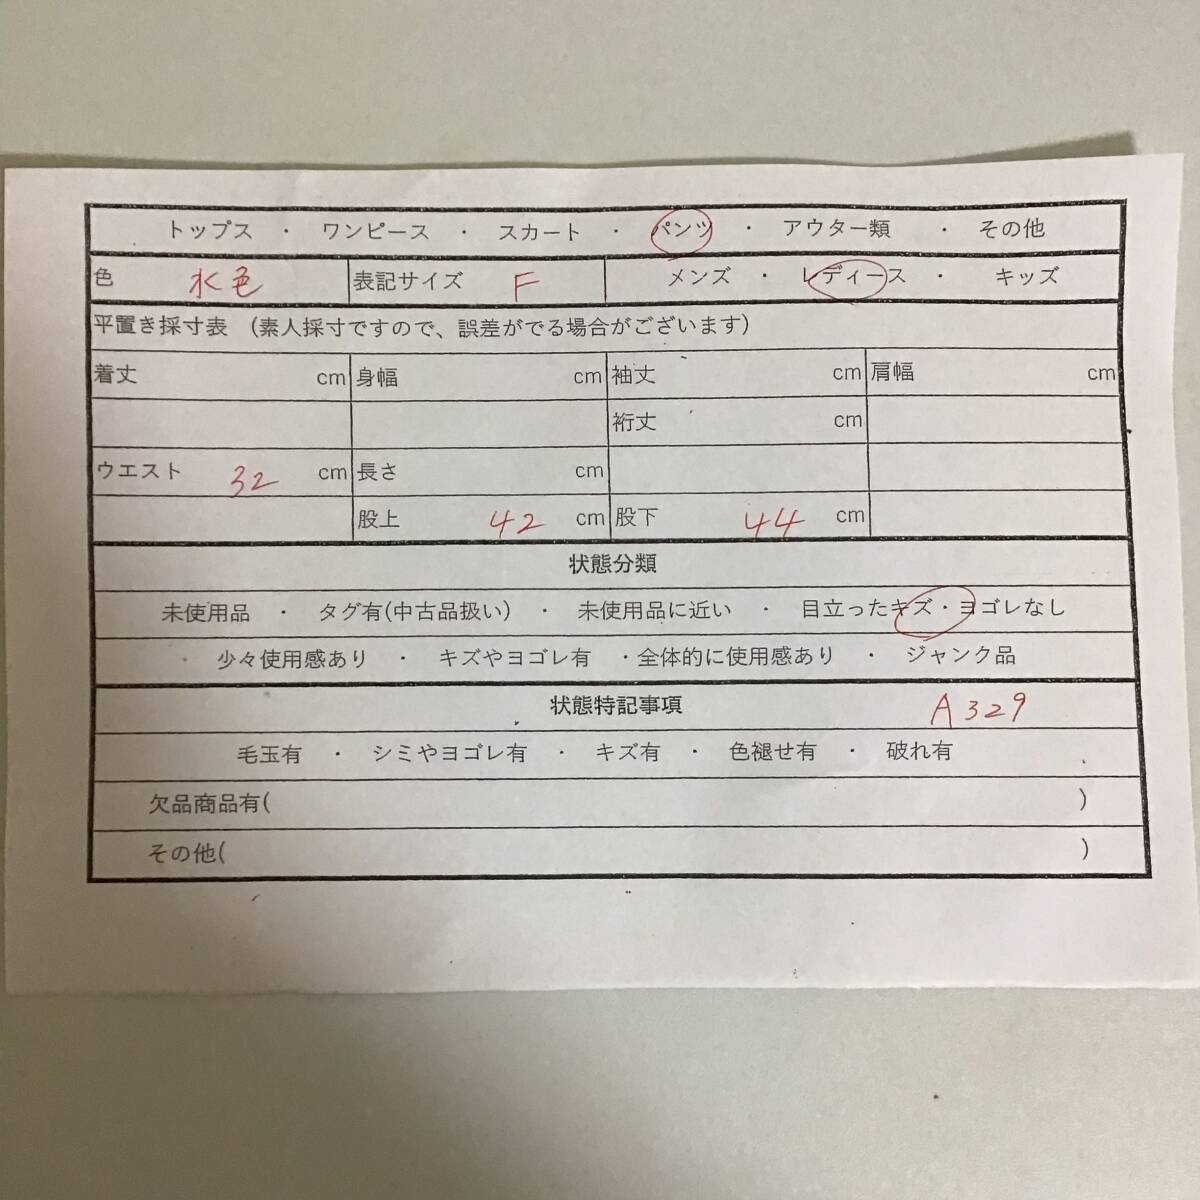 トップス ・ ワンピース ・ スカート ・ パンツ ・ アウター類 ・ その他
色 水色 表記サイズ F メンズ ・ レディース ・ キッズ
平置き採寸表 (素人採寸ですので、誤差がでる場合がございます)
着丈 cm 身幅 cm 袖丈 cm 肩幅 cm
裄丈 cm
ウエスト 32 cm 長さ cm
股上 42 cm 股下 44 cm
状態分類
未使用品 ・ タグ有(中古品扱い) ・ 未使用品に近い ・ 目立ったキズ・ヨゴレなし
・ 少々使用感あり ・ キズやヨゴレ有 ・全体的に使用感あり ・ ジャンク品
状態特記事項 A329
毛玉有 ・ シミやヨゴレ有 ・ キズ有 ・ 色褪せ有 ・ 破れ有
欠品商品有( )
その他( )